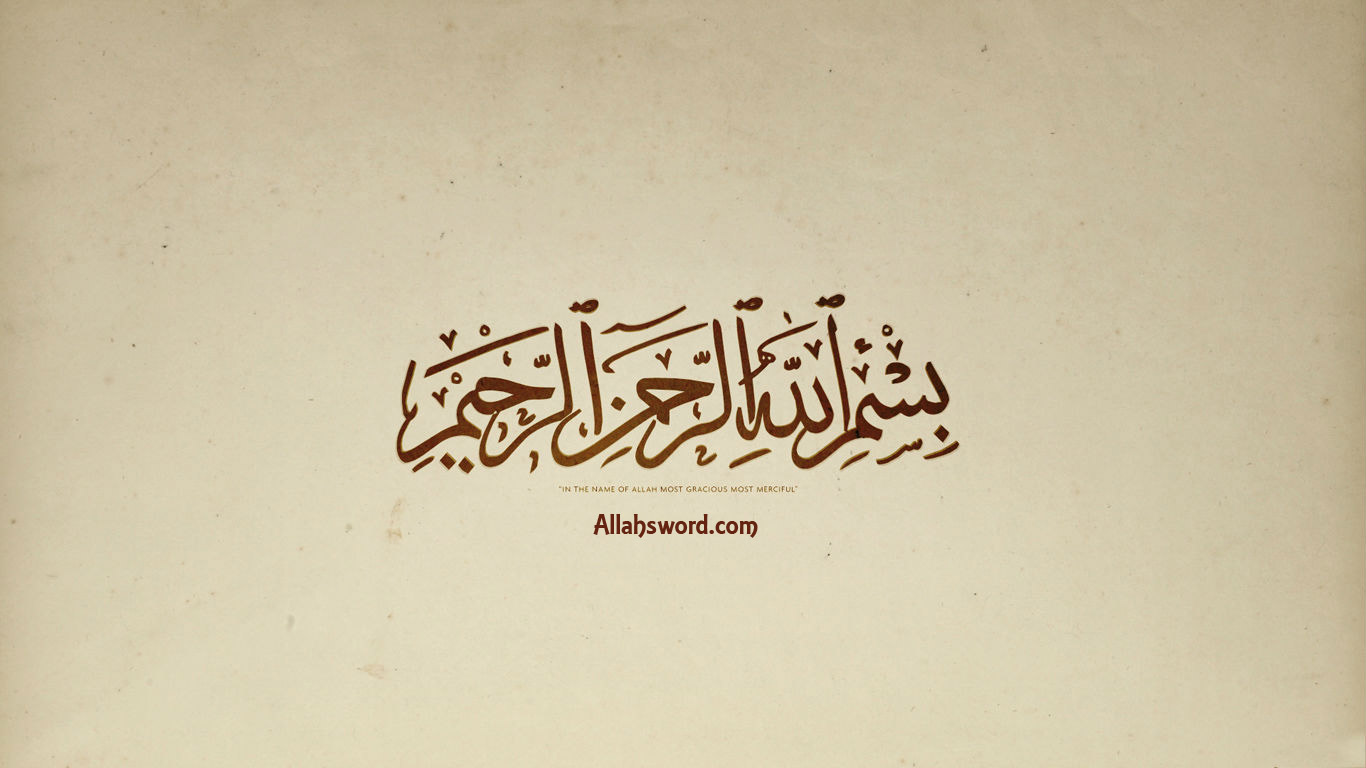 بِسْمِ ٱللَّهِ ٱلرَّحْمَٰنِ ٱلرَّحِيمِ
"IN THE NAME OF ALLAH MOST GRACIOUS MOST MERCIFUL"
Allahsword.com